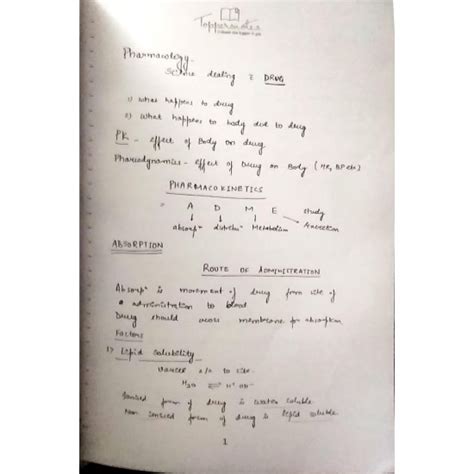 Toppersnotes
Pharmacology
Science dealing c̄ DRUG
1) What happens to drug
2) What happens to body due to drug
PK - effect of Body on drug
Pharmcodynamics - effect of Drug on Body (HR, BP etc)
PHARMACOKINETICS
A D M E study
absorpⁿ distribuⁿ Metabolism Excretion
ABSORPTION
ROUTE OF ADMINISTRATION
Absorpⁿ is movement of drug from site of
administration to blood
Drug should cross membrane for absorption
Factors
1) Lipid solubility
to site
H₂O ⇌ H⁺ OH⁻
Ionised form of drug is water soluble
Non ionised form of drug is lipid soluble
1